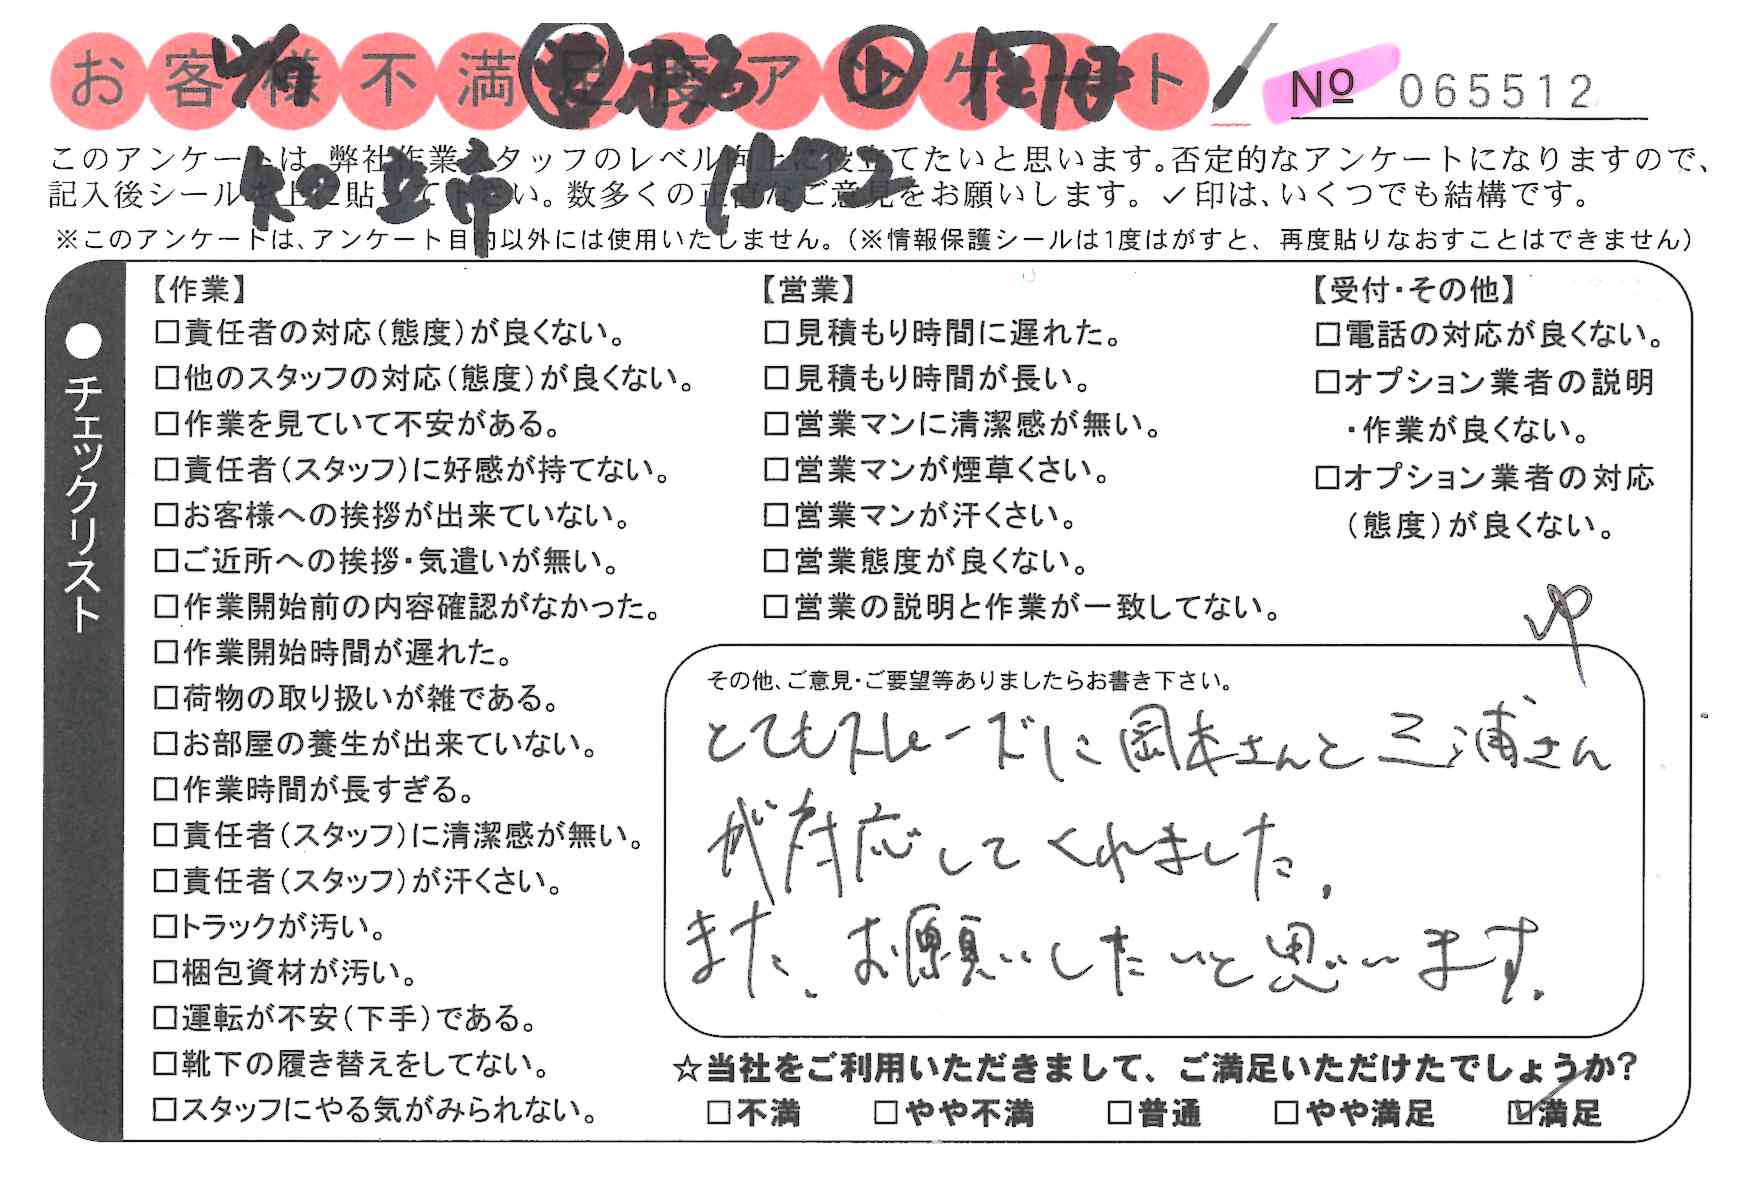 お客様不満足度アンケート
No 065512
このアンケートは、弊社作業スタッフのレベル向上に役立てたいと思います。否定的なアンケートになりますので、
記入後シールを上に貼って下さい。数多くの正直なご意見をお願いします。✓印は、いくつでも結構です。
知立市
※このアンケートは、アンケート目的以外には使用いたしません。(※情報保護シールは1度はがすと、再度貼りなおすことはできません)
●チェックリスト
【作業】
□責任者の対応(態度)が良くない。
□他のスタッフの対応(態度)が良くない。
□作業を見ていて不安がある。
□責任者(スタッフ)に好感が持てない。
□お客様への挨拶が出来ていない。
□ご近所への挨拶・気遣いが無い。
□作業開始前の内容確認がなかった。
□作業開始時間が遅れた。
□荷物の取り扱いが雑である。
□お部屋の養生が出来ていない。
□作業時間が長すぎる。
□責任者(スタッフ)に清潔感が無い。
□責任者(スタッフ)が汗くさい。
□トラックが汚い。
□梱包資材が汚い。
□運転が不安(下手)である。
□靴下の履き替えをしてない。
□スタッフにやる気がみられない。
【営業】
□見積もり時間に遅れた。
□見積もり時間が長い。
□営業マンに清潔感が無い。
□営業マンが煙草くさい。
□営業マンが汗くさい。
□営業態度が良くない。
□営業の説明と作業が一致してない。
【受付・その他】
□電話の対応が良くない。
□オプション業者の説明
・作業が良くない。
□オプション業者の対応
(態度)が良くない。
その他、ご意見・ご要望等ありましたらお書き下さい。
とてもスムーズに岡本さんと三浦さん
が対応してくれました。
また、お願いしたいと思います。
☆当社をご利用いただきまして、ご満足いただけたでしょうか?
□不満 □やや不満 □普通 □やや満足 ☑満足